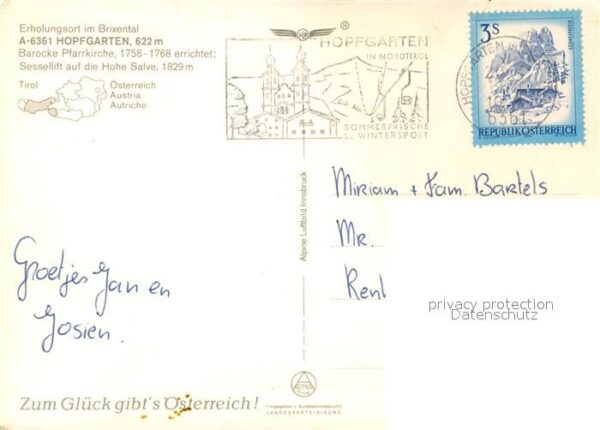 Erholungsort im Brixental
A-6361 HOPFGARTEN, 622 m
Barocke Pfarrkirche, 1758-1768 errichtet;
Sessellift auf die Hohe Salve, 1829 m
Tirol
Österreich
Austria
Autriche
®
HOPFGARTEN
IN NORDTIROL
SOMMERFRISCHE
U. WINTERSPORT
HOPFGARTEN
6361
3S
REPUBLIK ÖSTERREICH
Alpine Luftbild Innsbruck
Miriam + Fam. Bartels
Mr.
Groetjes Jan en
Josien.
privacy protection
Datenschutz
Zum Glück gibt's Österreich!
LANDESVERTEIDIGUNG